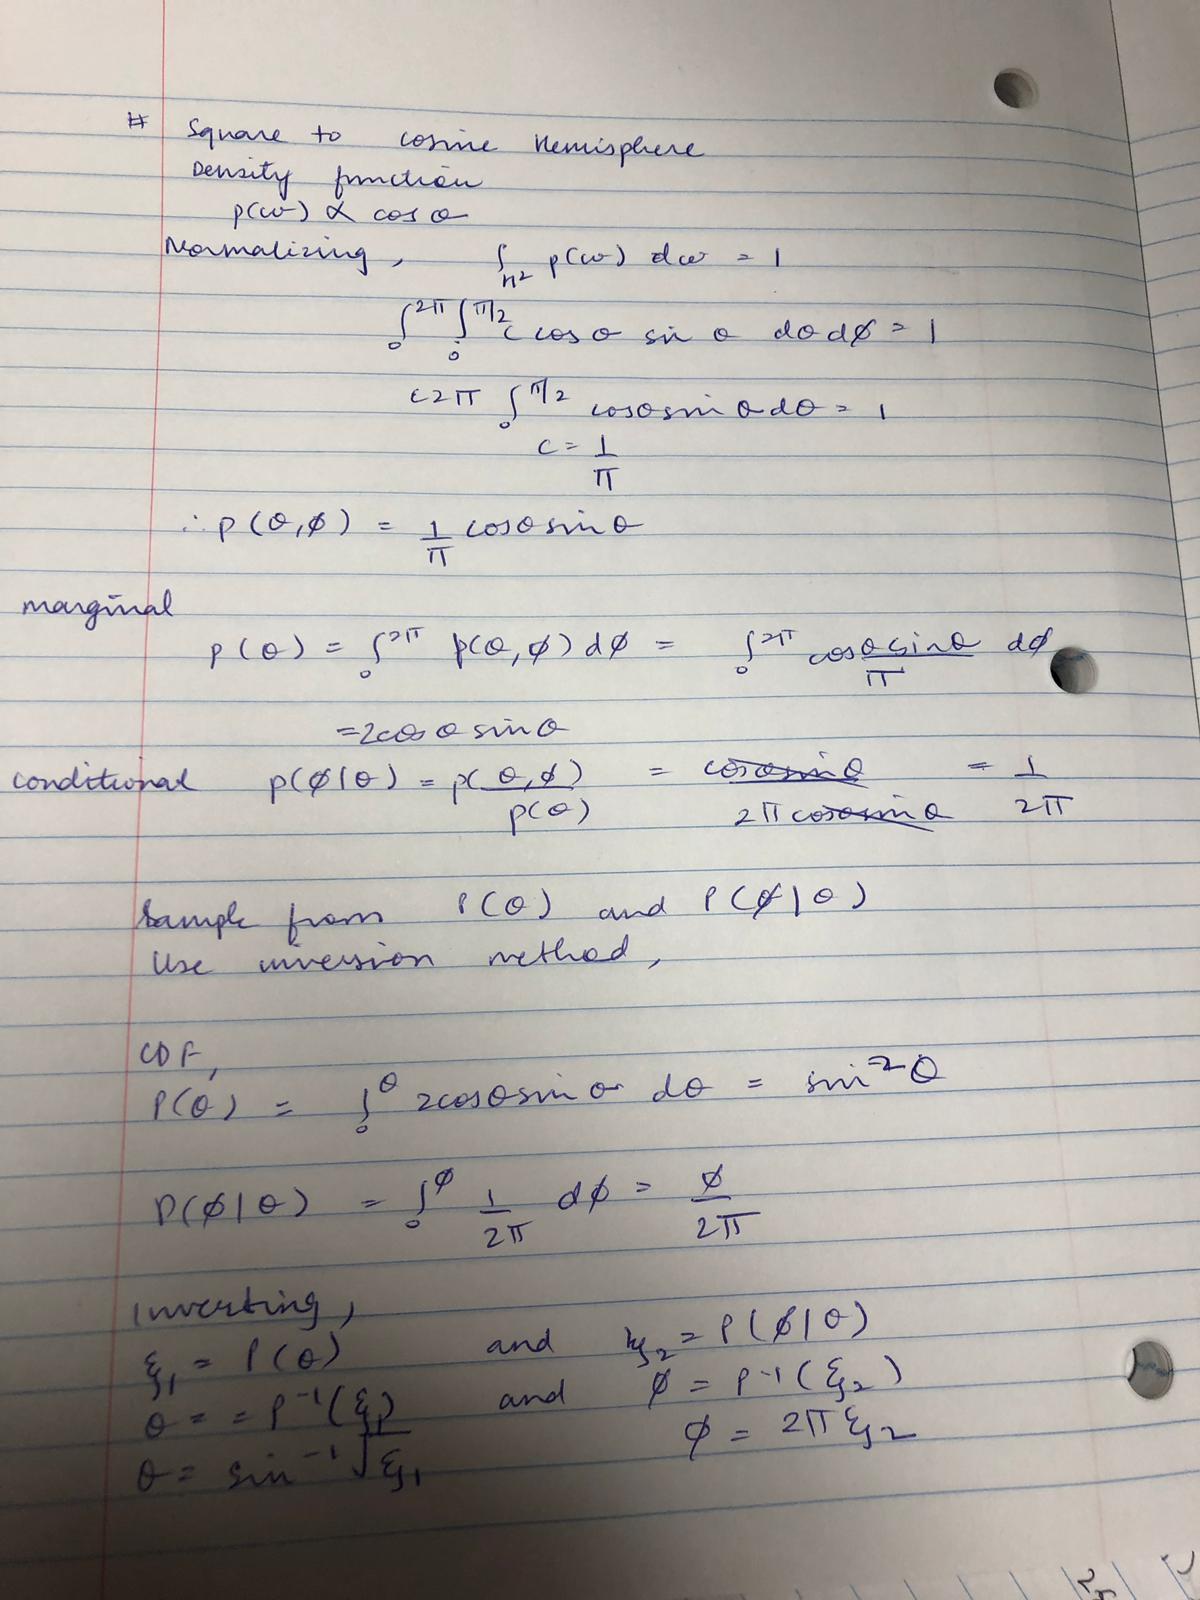 # Square to cosine Hemisphere
Density function
p(ω) ∝ cos θ
Normalizing, ∫_{H²} p(ω) dω = 1
∫₀^{2π} ∫₀^{π/2} c cos θ sin θ dθ dϕ = 1
c2π ∫₀^{π/2} cosθ sin θ dθ = 1
c = 1/π
∴ p(θ,ϕ) = 1/π cosθ sinθ
marginal
p(θ) = ∫₀^{2π} p(θ,ϕ) dϕ = ∫₀^{2π} cosθ sinθ/π dϕ
= 2cos θ sin θ
conditional p(ϕ|θ) = p(θ,ϕ)/p(θ) = cosθsinθ/2π cosθsinθ = 1/2π
Sample from P(θ) and P(ϕ|θ)
Use inversion method,
CDF,
P(θ) = ∫₀^θ 2cosθ sin θ dθ = sin²θ
P(ϕ|θ) = ∫₀^ϕ 1/2π dϕ = ϕ/2π
Inverting,
ξ₁ = P(θ) and ξ₂ = P(ϕ|θ)
θ = = P⁻¹(ξ₁) and ϕ = P⁻¹(ξ₂)
ϕ = 2π ξ₂
θ = sin⁻¹ √ξ₁